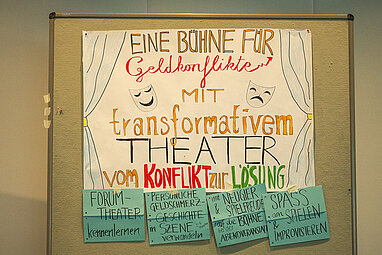 EINE BÜHNE FÜR
Geldkonflikte
MIT
transformativem
THEATER
vom KONFLIKT zur LÖSUNG
FORUM-
THEATER
kennenlernen
PERSÖNLICHE
GELDSCHMERZ-
GESCHICHTE
in SZENE
verwandeln
mit NEUGIER
& SPIELFREUDE
auf die BÜHNE
der
SPASS
am SPIELEN
& IMPROVISIEREN